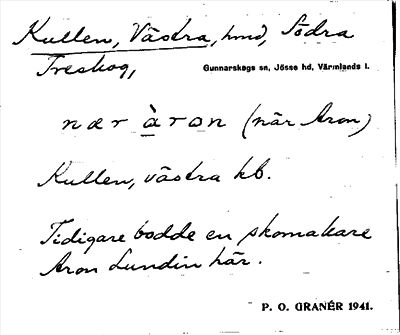 Kullen, Västra, hmd, Södra
Treskog, Gunnarskogs sn, Jösse hd, Värmlands l.
nær àron (när Aron)
Kullen, västra kb.
Tidigare bodde en skomakare
Aron Lundin här.
P. O. GRANÉR 1941.